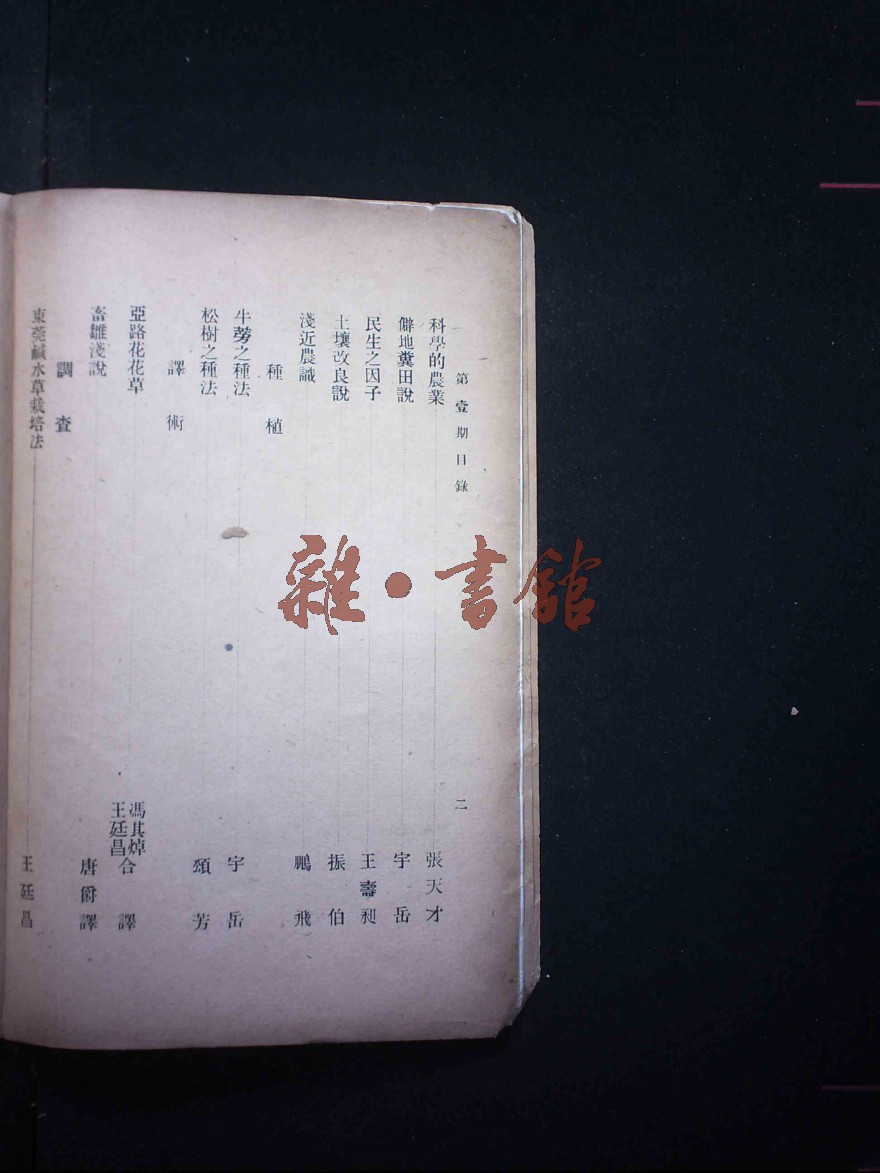 第壹期目錄 二
科學的農業 張天才
僻地糞田說 宇岳
民生之因子 王壽昶
土壤改良說 振伯
淺近農識 鵬飛
種植
牛蒡之種法 宇岳
松樹之種法 頌芳
譯術
亞路花花草 馮其焯 王廷昌 合譯
畜雛淺說 唐爵譯
調查
東莞鹹水草栽培法 王廷昌
雜·書館